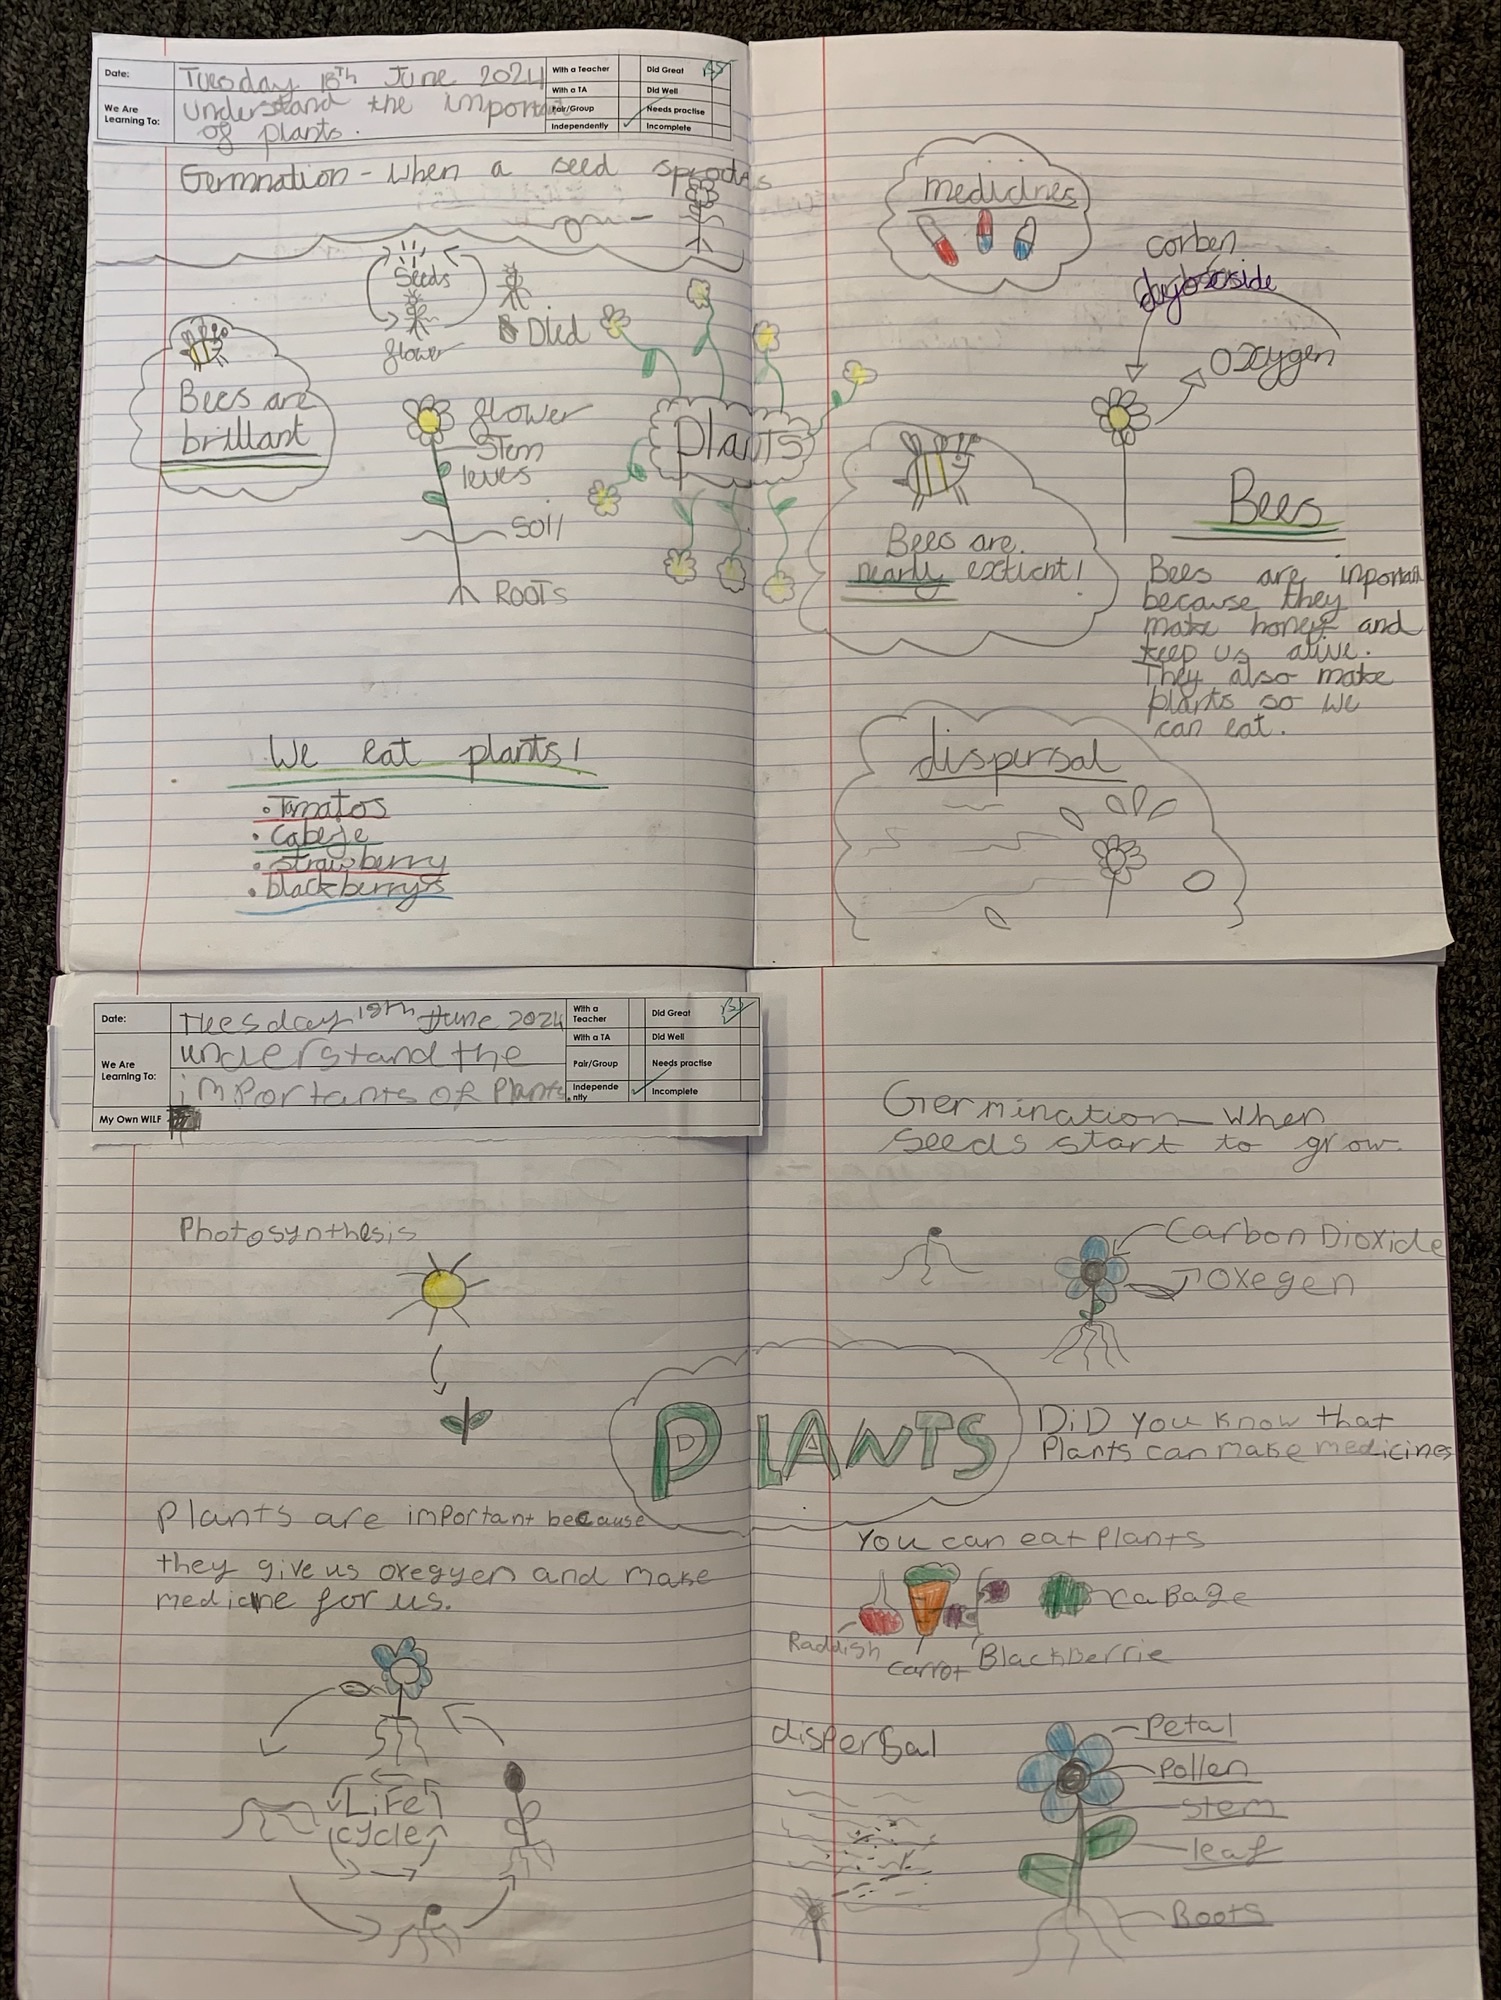 Date:
Tuesday 18Th June 2024
With a Teacher
Did Great
With a TA
Did Well
We Are
Learning To:
understand the
of plants.
Pair/Group
Needs practise
Independently
Incomplete
Germnation - when a seed sprouts
Seeds
flower
Died
Bees are
brillant
flower
Stem
leves
Soil
ROOTS
plants
We eat plants!
• Tomatos
• Cabege
• strawberry
• blackberrys
medicines
corben
Oxygen
Bees are
nearly exticnt!
Bees
Bees are inportant
because they
make honey and
keep us alive.
They also make
plants so we
can eat.
dispersal
Date:
Tuesday 18th June 2024
With a
Teacher
Did Great
With a TA
Did Well
We Are
Learning To:
understand the
importants of Plants.
Pair/Group
Needs practise
Independe
ntly
Incomplete
My Own WILF
Photosynthesis
Plants are important because
they give us oxegyen and make
medicine for us.
LiFe
cycle
PLANTS
Germination - When
seeds start to grow.
Carbon Dioxide
Oxegen
DiD you know that
Plants can make medicines
You can eat plants
Raddish
carrot
Blackberrie
caBage
dispersal
Petal
Pollen
stem
leaf
Roots